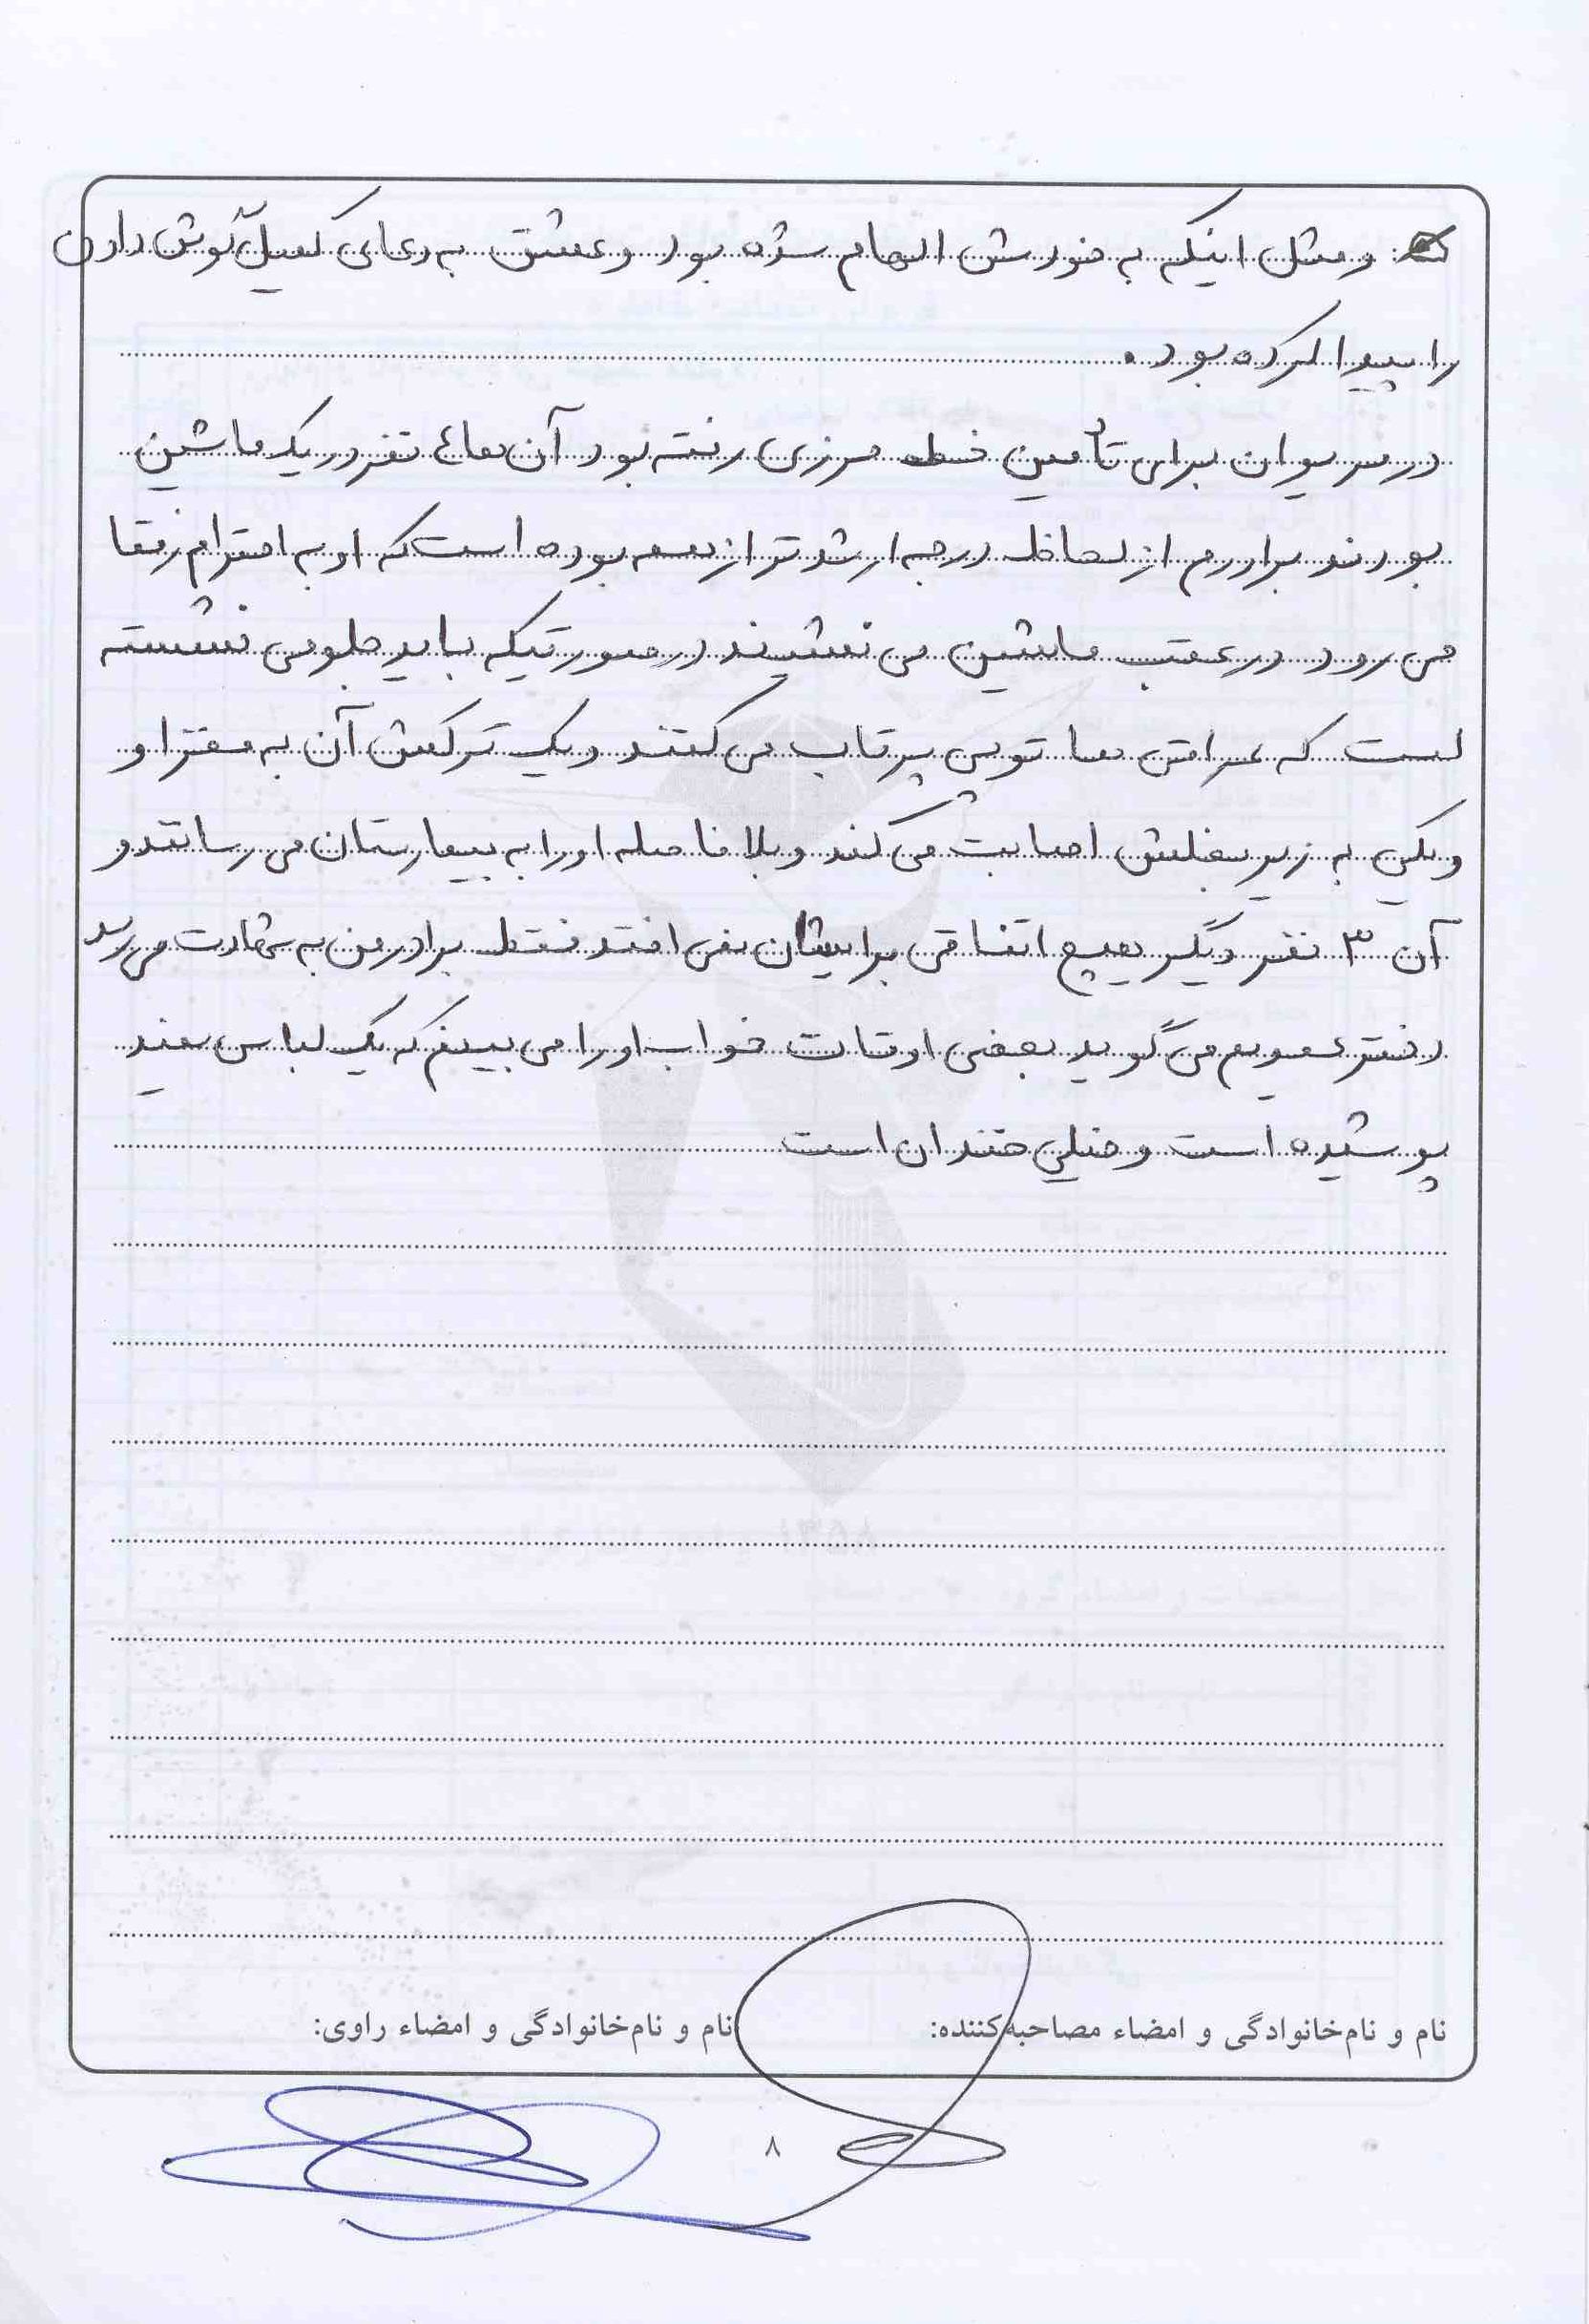 و مثل اینکه به خودش الهام شده بود و عشق به دعای کمیل گوش دادن
را پیدا کرده بود.
در مریوان برای تأمین خط مرزی رفته بود آن ها ۴ نفر در یک ماشین
بودند برادرم از لحاظ درجه ارشدتر از همه بوده است که او به احترام رفقا
می رود در عقب ماشین می نشیند در صورتیکه باید جلو می نشسته
است که عراقی ها توپی پرتاب می کنند و یک ترکش آن به مغز او
و یکی به زیر بغلش اصابت می کند و بلافاصله او را به بیمارستان می رسانند و
آن ۳ نفر دیگر هیچ اتفاقی برایشان نمی افتد فقط برادر من به شهادت می رسد
دختر عمویم می گوید بعضی اوقات خواب او را می بینم که یک لباس سفید
پوشیده است و خیلی خندان است
نام و نام‌خانوادگی و امضاء مصاحبه‌کننده: نام و نام‌خانوادگی و امضاء راوی:
۸